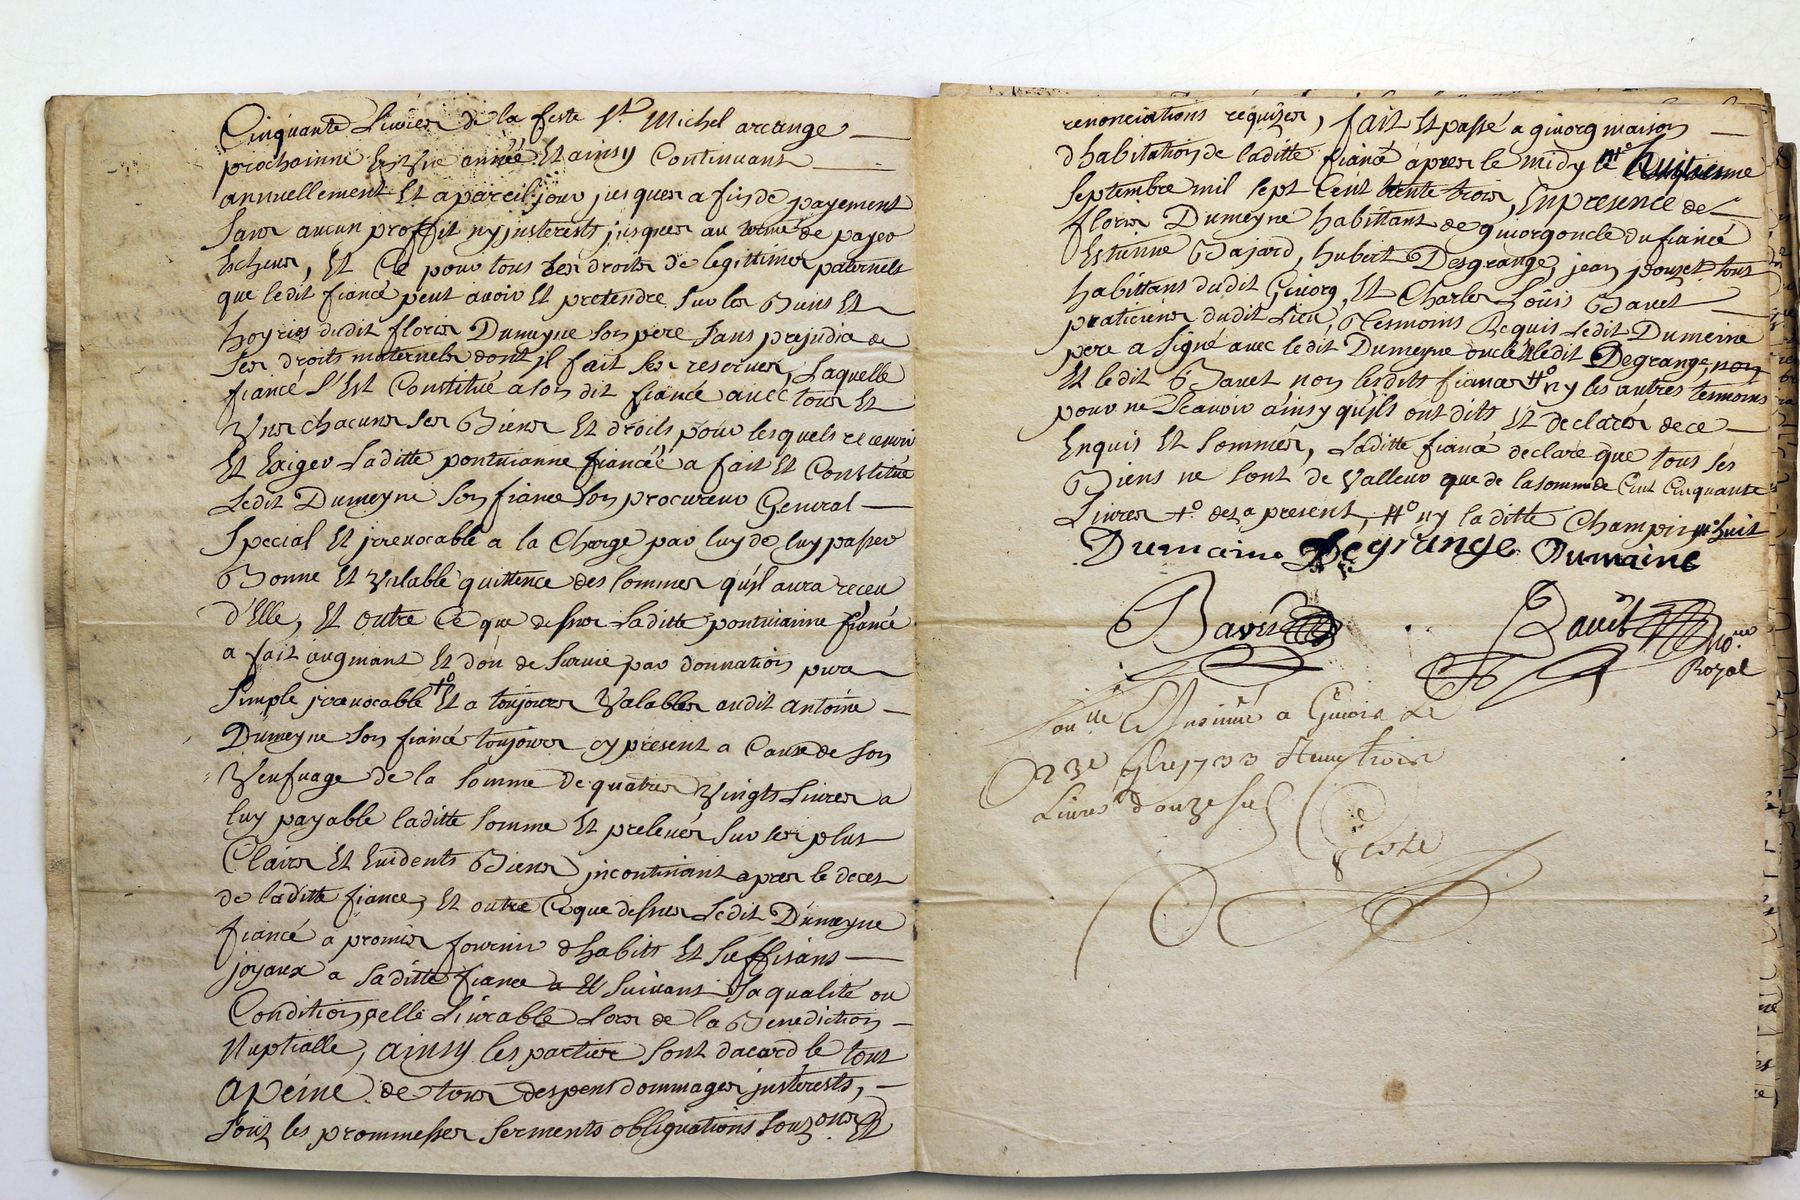 Cinquante Livres de la feste St Michel arcange
prochainne Et une année Et ainsy Continuant
annuellement Et a pareil jour jusques a fin de payement
Sans aucun proffit ny justerests jusques au terme de payer
Echeus, Et Ce pour tous Les droits de legittimes paternels
que ledit fiancé peut avoir Et pretendre Sur les Biens Et
hoyries dudit floris Dumeyne Son pere Sans prejudice de
Ses droits maternels dont jl fait Ses reserves, Laquelle
fiancé S'Est Constitué a Son dit fiancé avec tous Et
Uns chacuns Ses Biens Et droits pour lesquels recevoir
Et Exiger Laditte pontuianne fiancée a fait Et Constitué
Ledit Dumeyne Son fiance Son procureur General
Special Et jrrevocable a la Charge par luy de luy passer
Bonne Et Valable quittence des Sommes qu'jl aura receu
d'Elle, Et outre Ce que dessus Laditte pontuianne fiancé
a fait augmant Et don de Survie par donnation pure
Simple jrrevocable Et a toujours Valables audit antoine
Dumeyne Son fiancé toujours cy present a Cause de Son
Veufvage de la Somme de quatres Vingts Livres a
luy payable laditte Somme Et prelevés Sur Ses plus
Clairs Et Evidents Biens jncontinant apres le deces
de laditte fiance, Et outre Ce que dessus Ledit Dumeyne
fiancé a promis fournir d habits Et Suffisans
joyaux a Saditte fiance a Et Suivant Sa qualité ou
Condition, a elle Livrable Lors de la Benediction
Nuptialle, ainsy les parties Sont dacord le tout
a peine de tous despens dommages justerests,
Souz les prommesses Serments obligations Souz Et
renonciations requizes, fait Et passé a givorg maison
d habitation de laditte fiancé apres le midy le huitieme
Septembre mil Sept Cent trente trois, En presence de
floris Dumeyne habittant de givorg oncle du fiancé
Estienne Bajard, hubert Desgrange, jean pouzet tous
habittans dudit Givorg, Et Charles Loüis Bavet
praticiens dudit Lieu, Tesmoins Requis Ledit Dumeine
pere a Signé avec ledit Dumeyne oncle ledit Degrange, non
Et ledit Bavet non lesdits fiances ny les autres tesmoins
pour ne Scavoir ainsy qu'jls ont dits Et declarés de ce
Enquis Et Sommés, Laditte fiancé declaré que tous Ses
Biens ne Sont de Valleur que de la Somme de Cent Cinquante
Livres des a present, ny laditte Champin huit
Dumaine Degrange Dumaine
Bavet Bavet No.re
Royal
Con.lle Et Insinué a Givors Le
23e 7bre 1733 Receu trois
Livres douze Sols